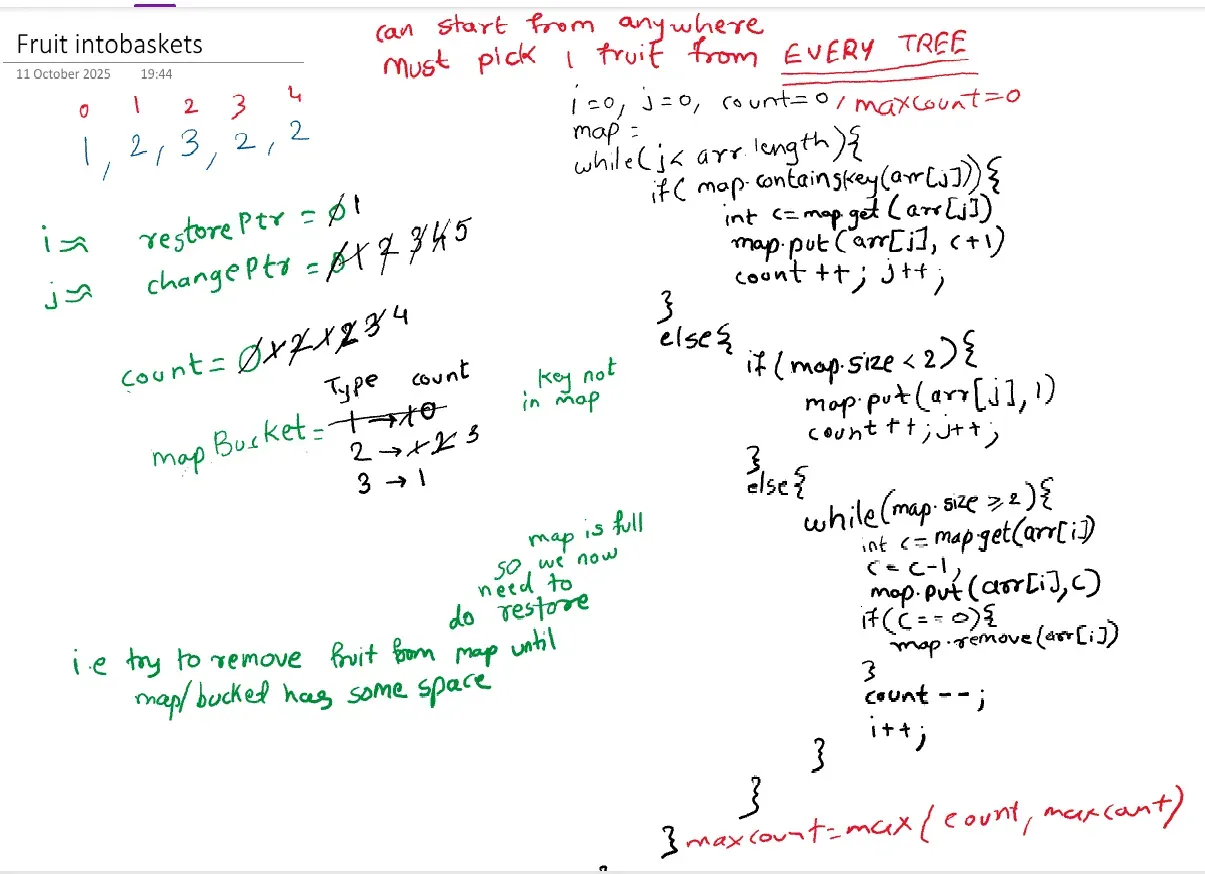 Fruit intobaskets
11 October 2025 19:44
can start from anywhere
Must pick 1 fruit from EVERY TREE
0 1 2 3 4
1, 2, 3, 2, 2
i≈ restorePtr = 0 1
j≈ changePtr = 0 1 2 3 4 5
count = 0 1 2 1 2 3 4
Type count
mapBucket = 1 → 1 0
2 → 1 2 3
3 → 1
key not
in map
map is full
so we now
need to
do restore
i.e try to remove fruit from map until
map/bucked has some space
i=0, j=0, count=0, maxcount=0
map =
while(j< arr.length){
if( map.containsKey(arr[j])){
int c=map.get(arr[j])
map.put(arr[j], c+1)
count ++; j++;
}
else{
if(map.size < 2){
map.put(arr[j],1)
count ++; j++;
}
else{
while(map.size ≥ 2){
int c=map.get(arr[i])
c = c-1,
map.put(arr[i],c)
if(c==0){
map.remove(arr[i])
}
count --;
i++;
}
}
} maxcount=max(count, maxcant)